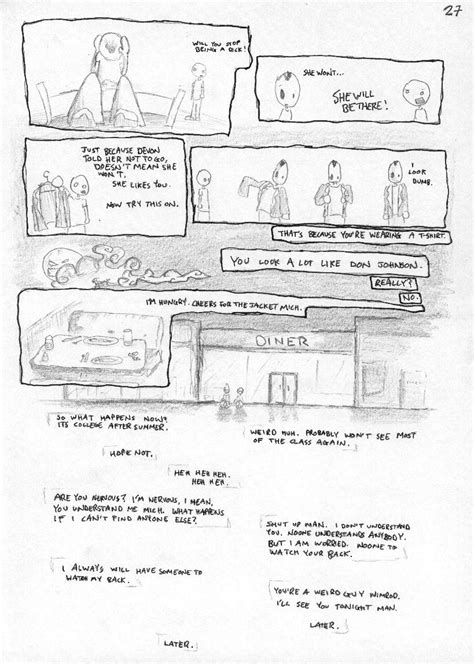 27
WILL YOU STOP
BEING A DICK!
SHE WONT...
SHE WILL
BE THERE!
JUST BECAUSE DEVON
TOLD HER NOT TO GO,
DOESN'T MEAN SHE
WON'T.
SHE LIKES YOU.
NOW TRY THIS ON.
I
LOOK
DUMB.
THAT'S BECAUSE YOU'RE WEARING A T-SHIRT.
YOU LOOK A LOT LIKE DON JOHNSON.
REALLY?
NO.
I'M HUNGRY. CHEERS FOR THE JACKET MICH.
DINER
SO WHAT HAPPENS NOW?
ITS COLLEGE AFTER SUMMER.
WEIRD HUH. PROBABLY WON'T SEE MOST
OF THE CLASS AGAIN.
HOPE NOT.
HEH HEH HEH.
HEH HEH.
ARE YOU NERVOUS? I'M NERVOUS, I MEAN,
YOU UNDERSTAND ME MICH. WHAT HAPPENS
IF I CAN'T FIND ANYONE ELSE?
SHUT UP MAN. I DON'T UNDERSTAND
YOU. NOONE UNDERSTANDS ANYBODY.
BUT I AM WORRIED. NOONE TO
WATCH YOUR BACK.
I ALWAYS WILL HAVE SOMEONE TO
WATCH MY BACK.
YOU'RE A WEIRD GUY NIMROD.
I'LL SEE YOU TONIGHT MAN.
LATER.
LATER.